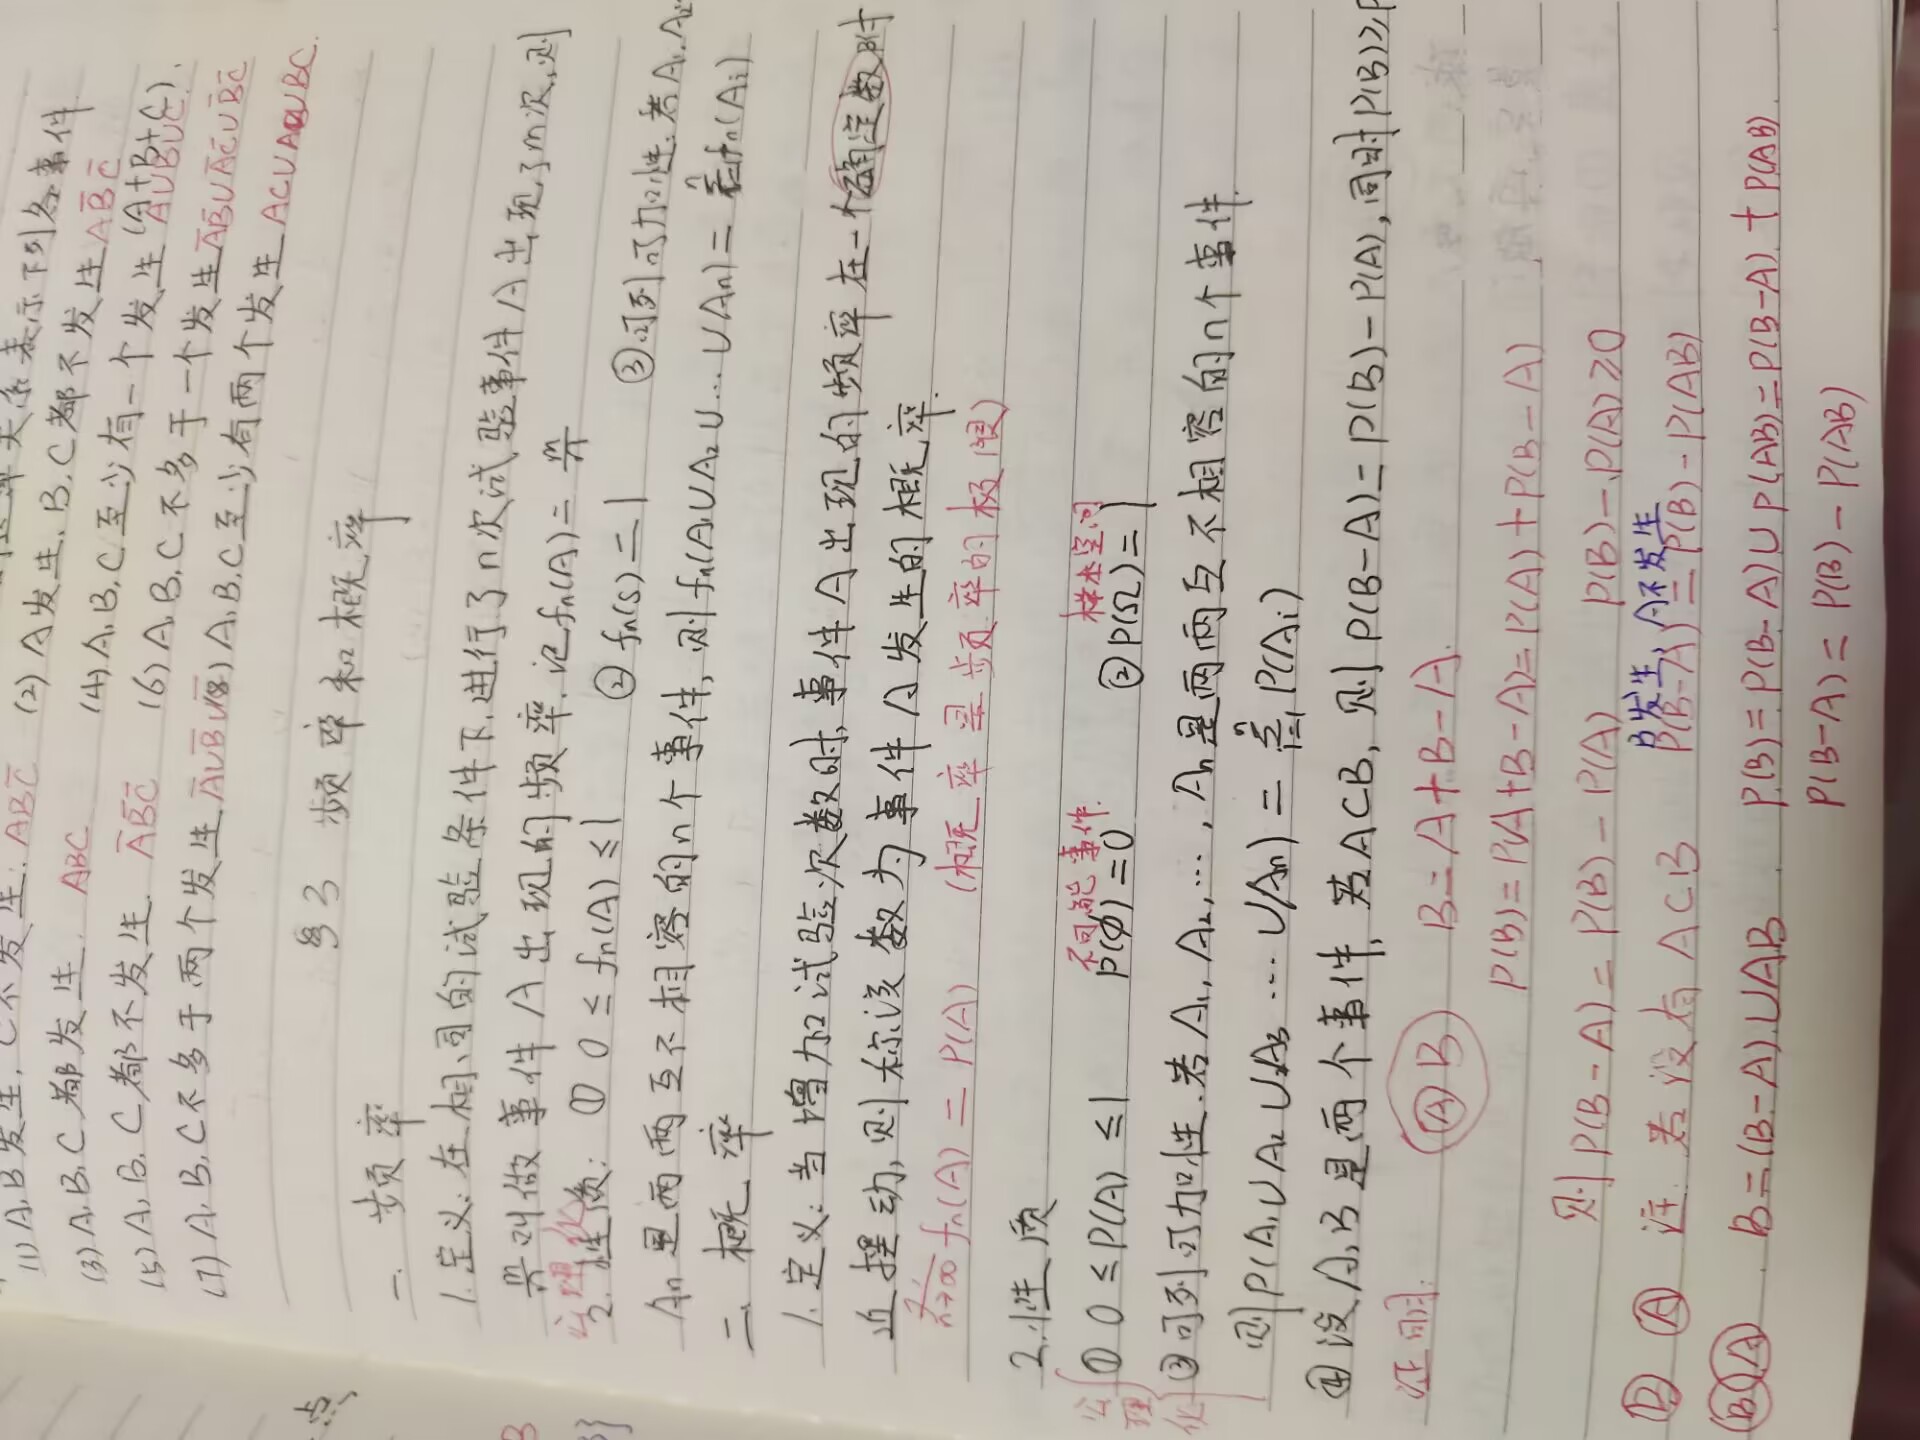 (1) A,B发生,C不发生: ABC̅ (2) A发生,B,C都不发生 AB̅C̅
(3) A,B,C都发生. ABC (4) A,B,C至少有一个发生 (A+B+C) AUBUC
(5) A,B,C都不发生. A̅B̅C̅ (6) A,B,C不多于一个发生 A̅B̅UA̅C̅UB̅C̅
(7) A,B,C不多于两个发生 A̅UB̅UC̅ (8) A,B,C至少有两个发生 ACUABUBC.
§3 频率和概率
一. 频率
1.定义:在相同的试验条件下,进行了n次试验事件A出现了m次,则
m/n叫做事件A出现的频率.记fn(A)=m/n
公理化
2.性质: ① 0≤fn(A)≤1 ② fn(S)=1 ③可列可加性:若A₁,A₂
An是两两互不相容的n个事件,则fn(A₁UA₂U…UAn)=Σfn(Ai)
二. 概率
1.定义:当增加试验次数时,事件A出现的频率在一个确定数附
近摆动,则称该数为事件A发生的概率.
n→∞ fn(A)=P(A) (概率是频率的极限)
2.性质
不可能事件. 样本空间
公理化
① 0≤P(A)≤1 P(∅)=0 ②P(Ω)=1
③可列可加性.若A₁,A₂,…,An是两两互不相容的n个事件.
则P(A₁UA₂UA₃…UAn)=ΣP(Ai)
④设A,B是两个事件,若A⊂B,则P(B-A)=P(B)-P(A),同时P(B)≥P
证明: A B B=A+B-A.
P(B)=P(A+B-A)=P(A)+P(B-A)
则P(B-A)=P(B)-P(A) P(B)-P(A)≥0
B发生,A不发生
B A 注:若没有A⊂B P(B-A)=P(B)-P(AB)
B A B=(B-A)UAB P(B)=P(B-A)UP(AB)=P(B-A)+P(AB)
P(B-A)=P(B)-P(AB)